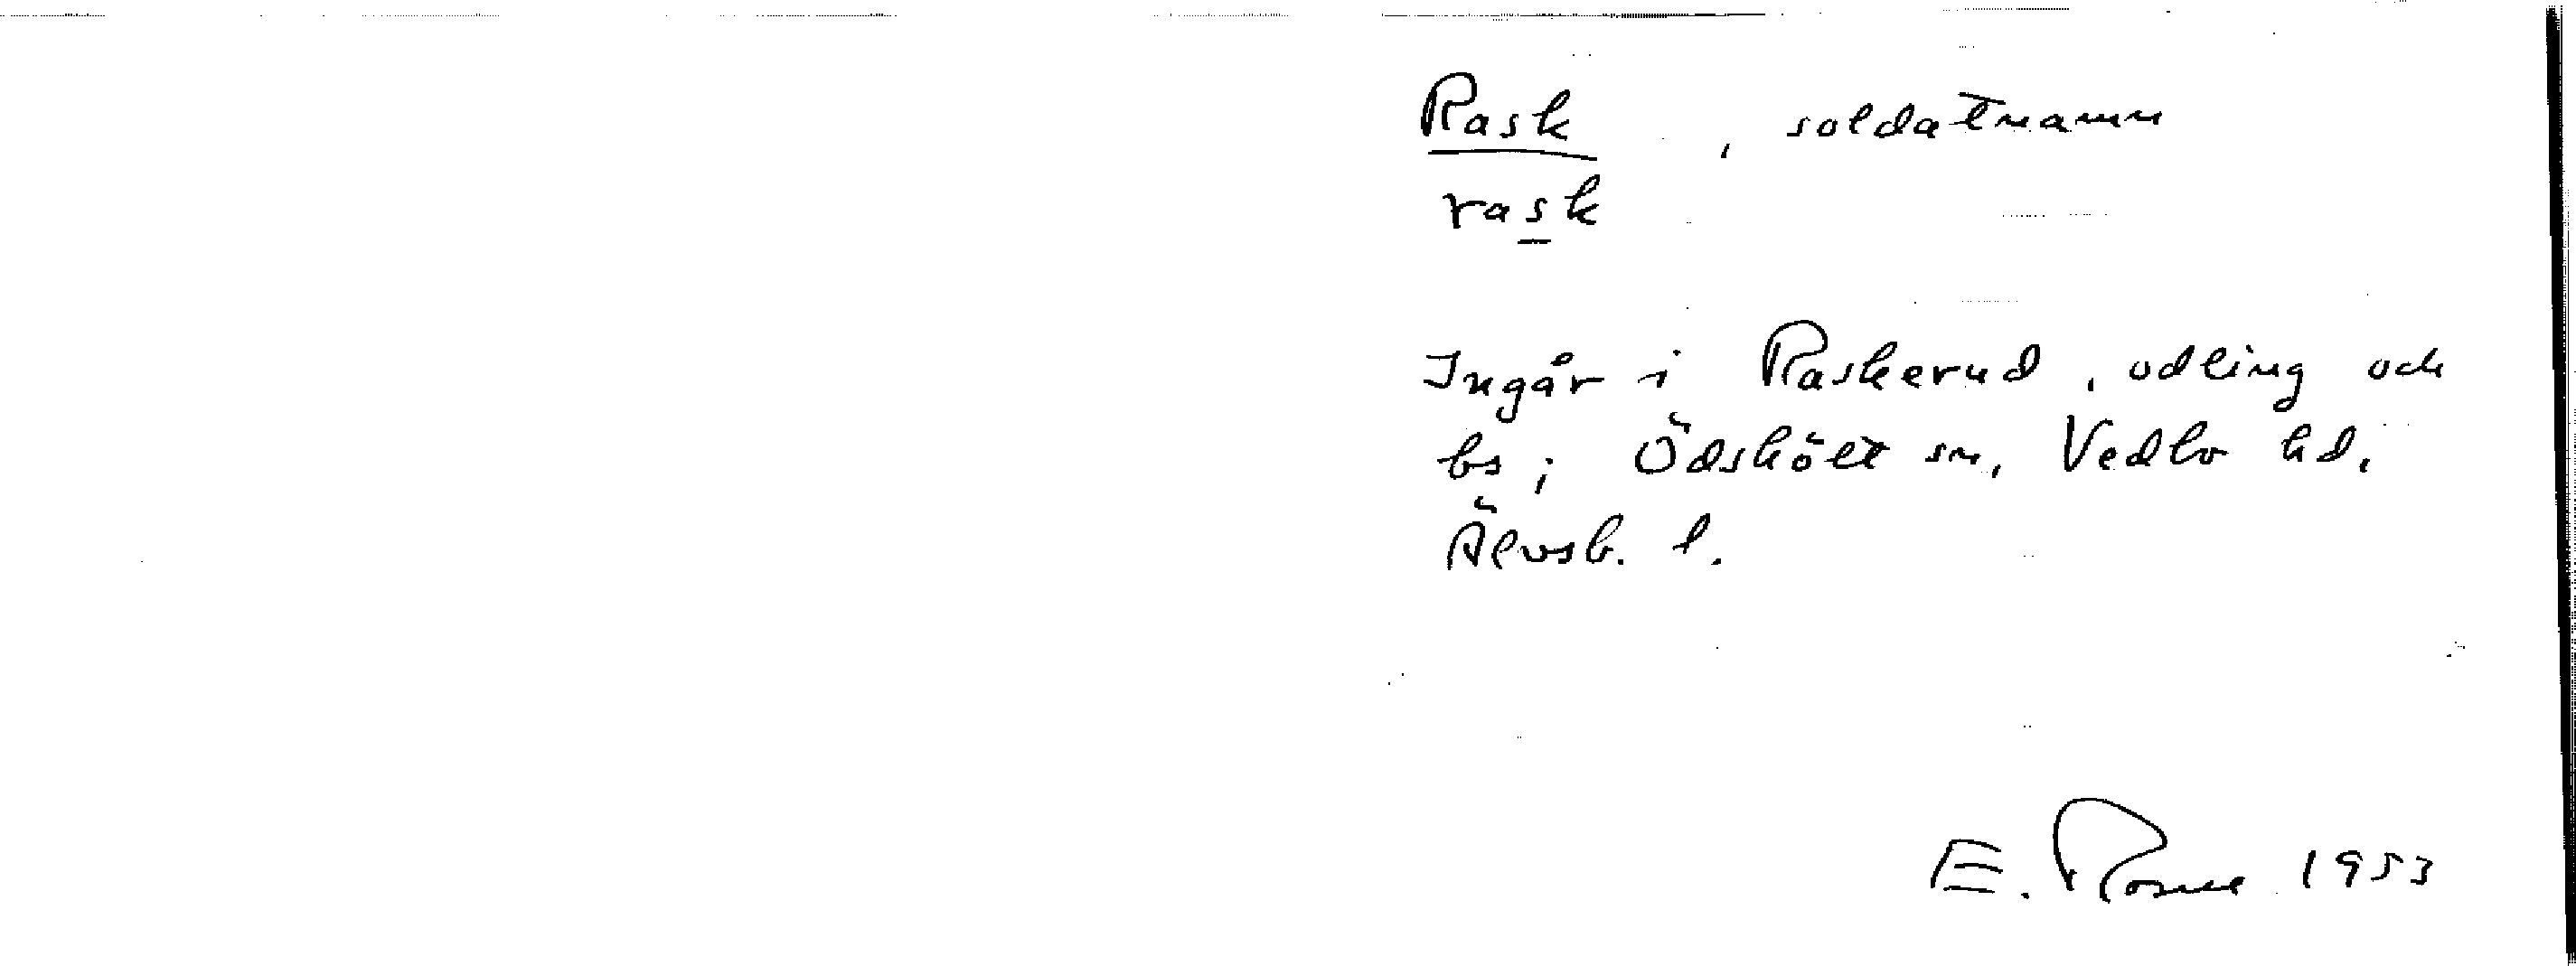 Rask, soldatnamn
rask
Ingår i Raskerud, odling och
bs i Ödskölt sn, Vedbo hd,
Älvsb. l.
E. 1953